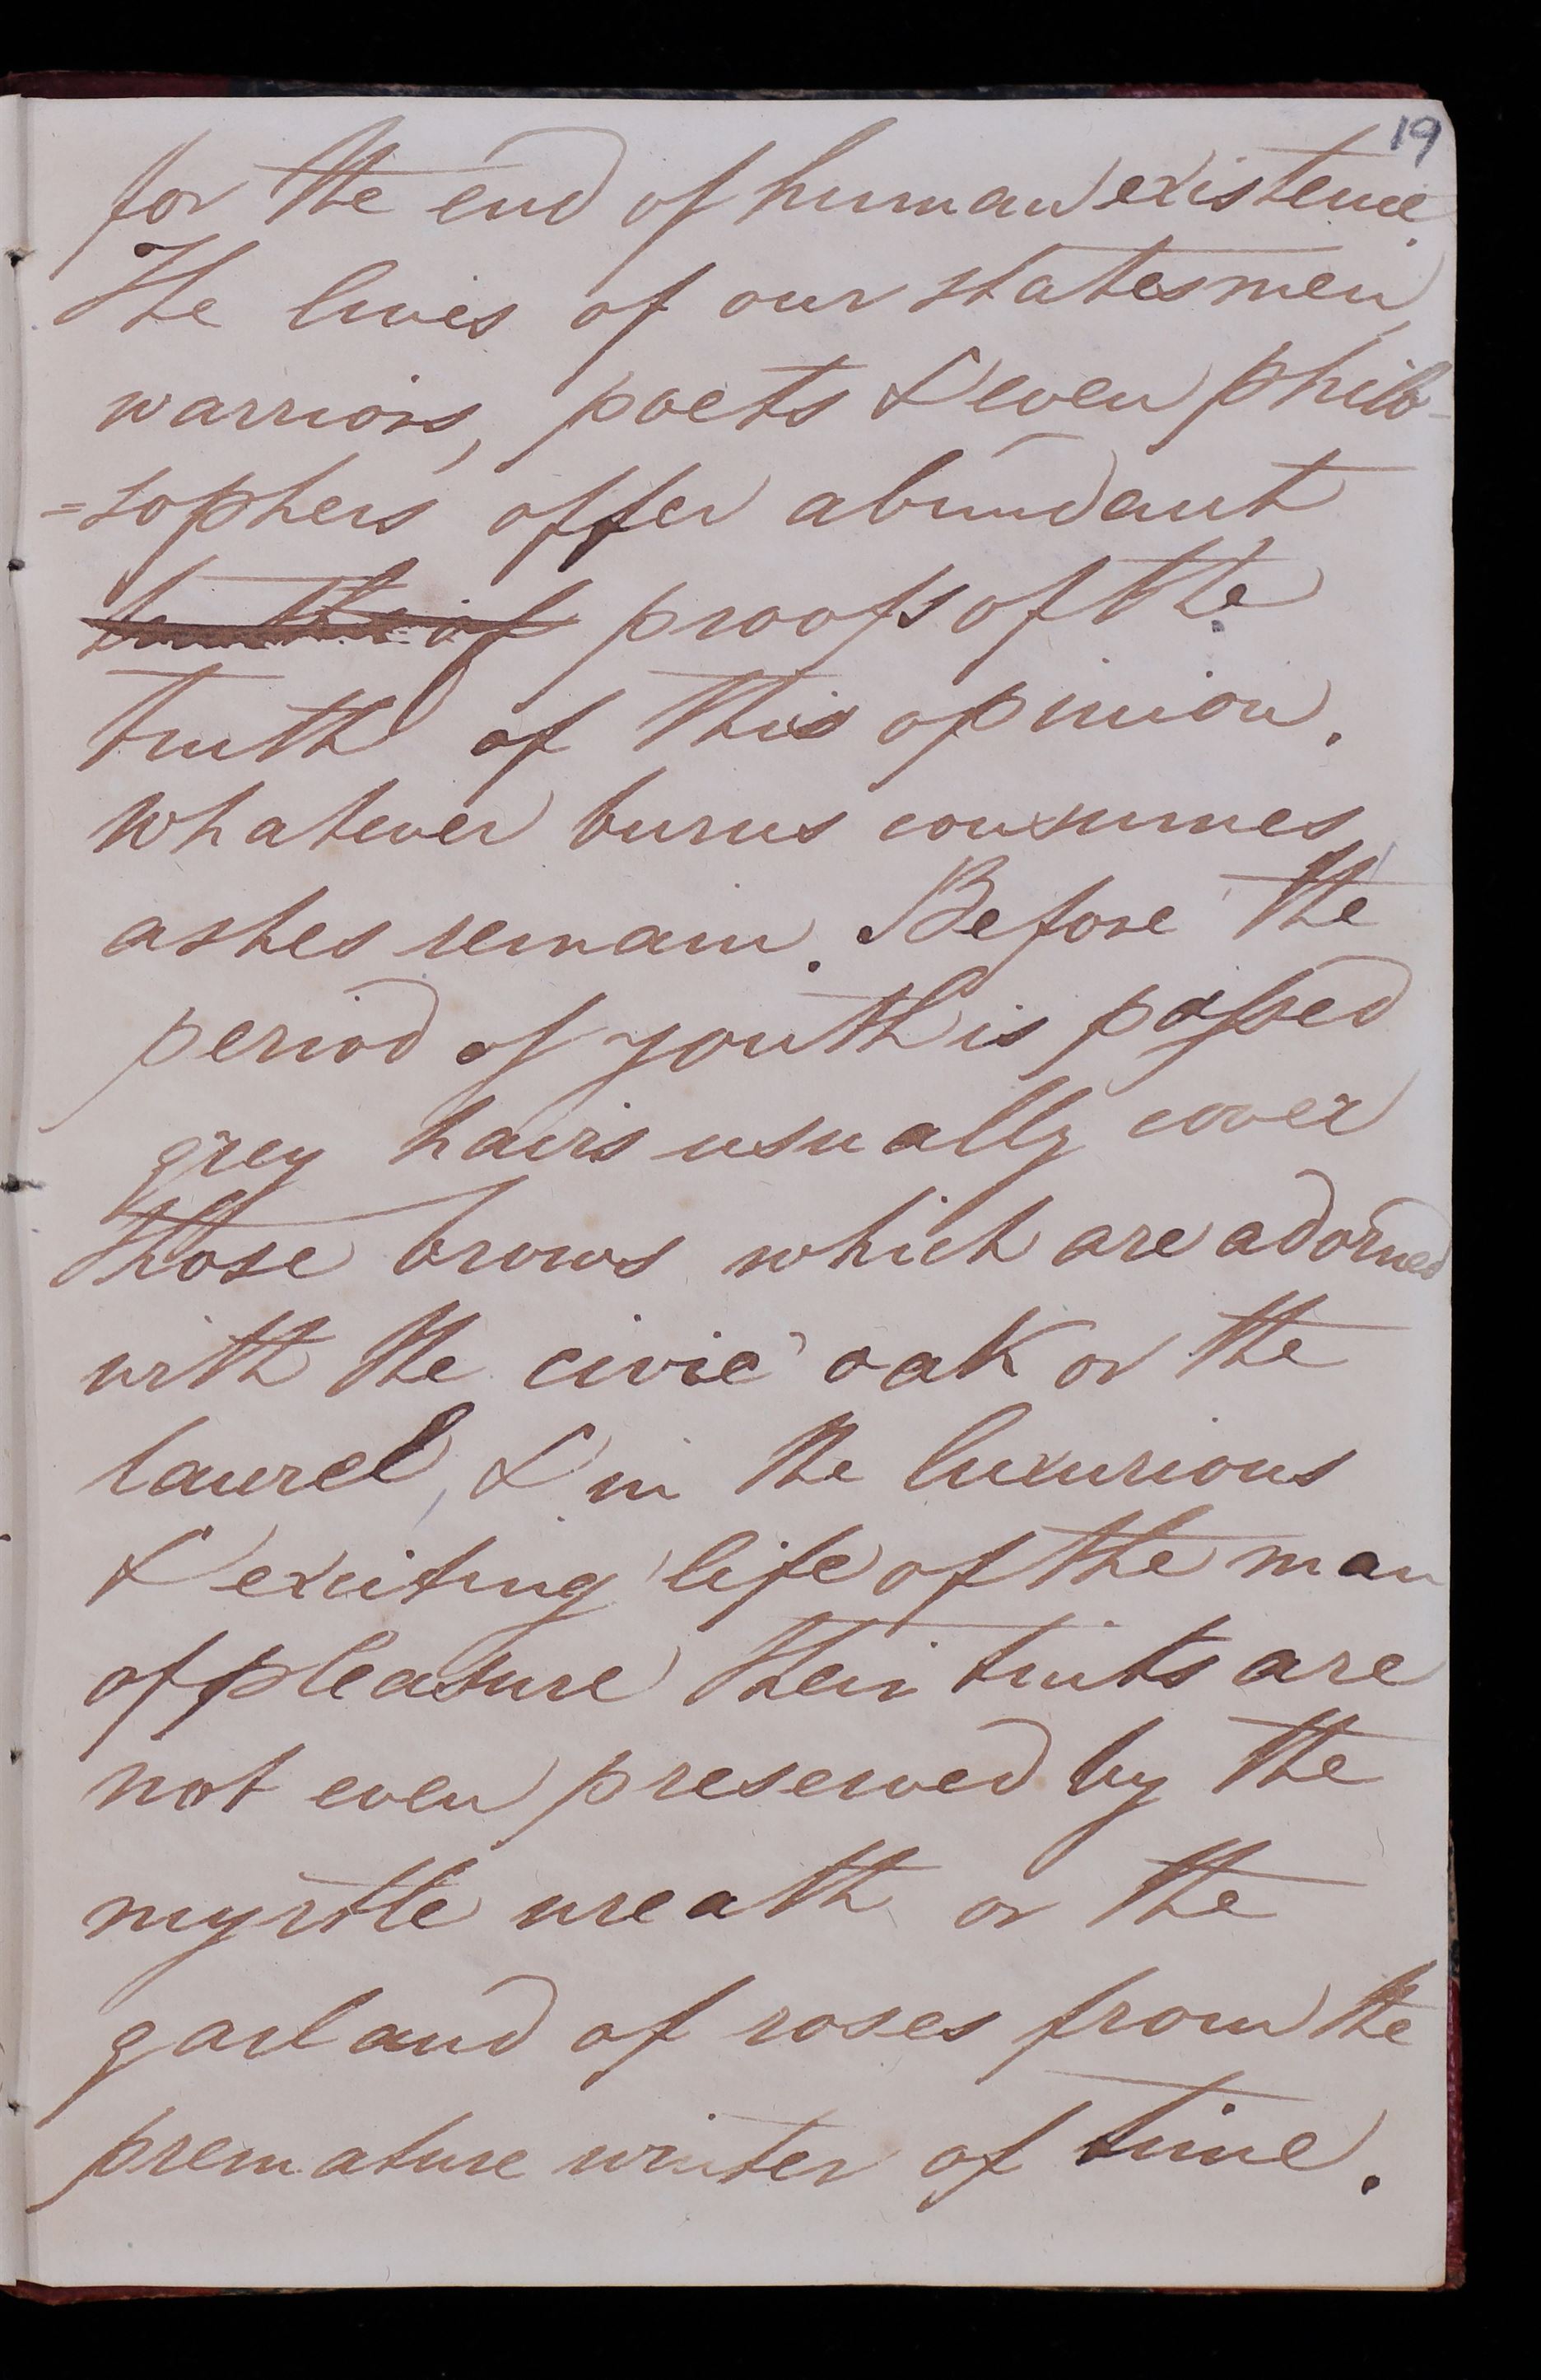 19
for the end of human existence.
The lives of our statesmen,
warriors, poets & even philo-
=sophers offer abundant
proofs of the
truth of this opinion.
Whatever burns consumes,
ashes remain. Before the
period of youth is passed
grey hairs usually cover
those brows which are adorned
with the civic oak or the
laurel, & in the luxurious
& exciting life of the man
of pleasure their tints are
not even preserved by the
myrtle wreath or the
garland of roses from the
premature winter of time.